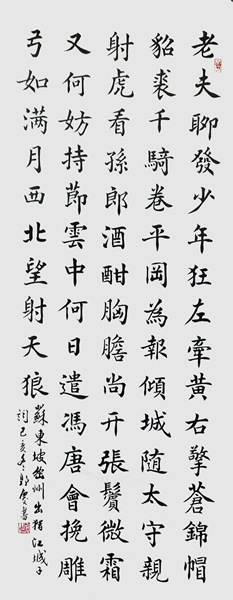 老夫聊發少年狂左牽黃右擎蒼錦帽
貂裘千騎卷平岡為報傾城随太守親
射虎看孫郎酒酣胸膽尚开張鬢微霜
又何妨持節雲中何日遣馮唐會挽雕
弓如满月西北望射天狼
蘇東坡密州出猎江城子
词己亥冬郭慶書